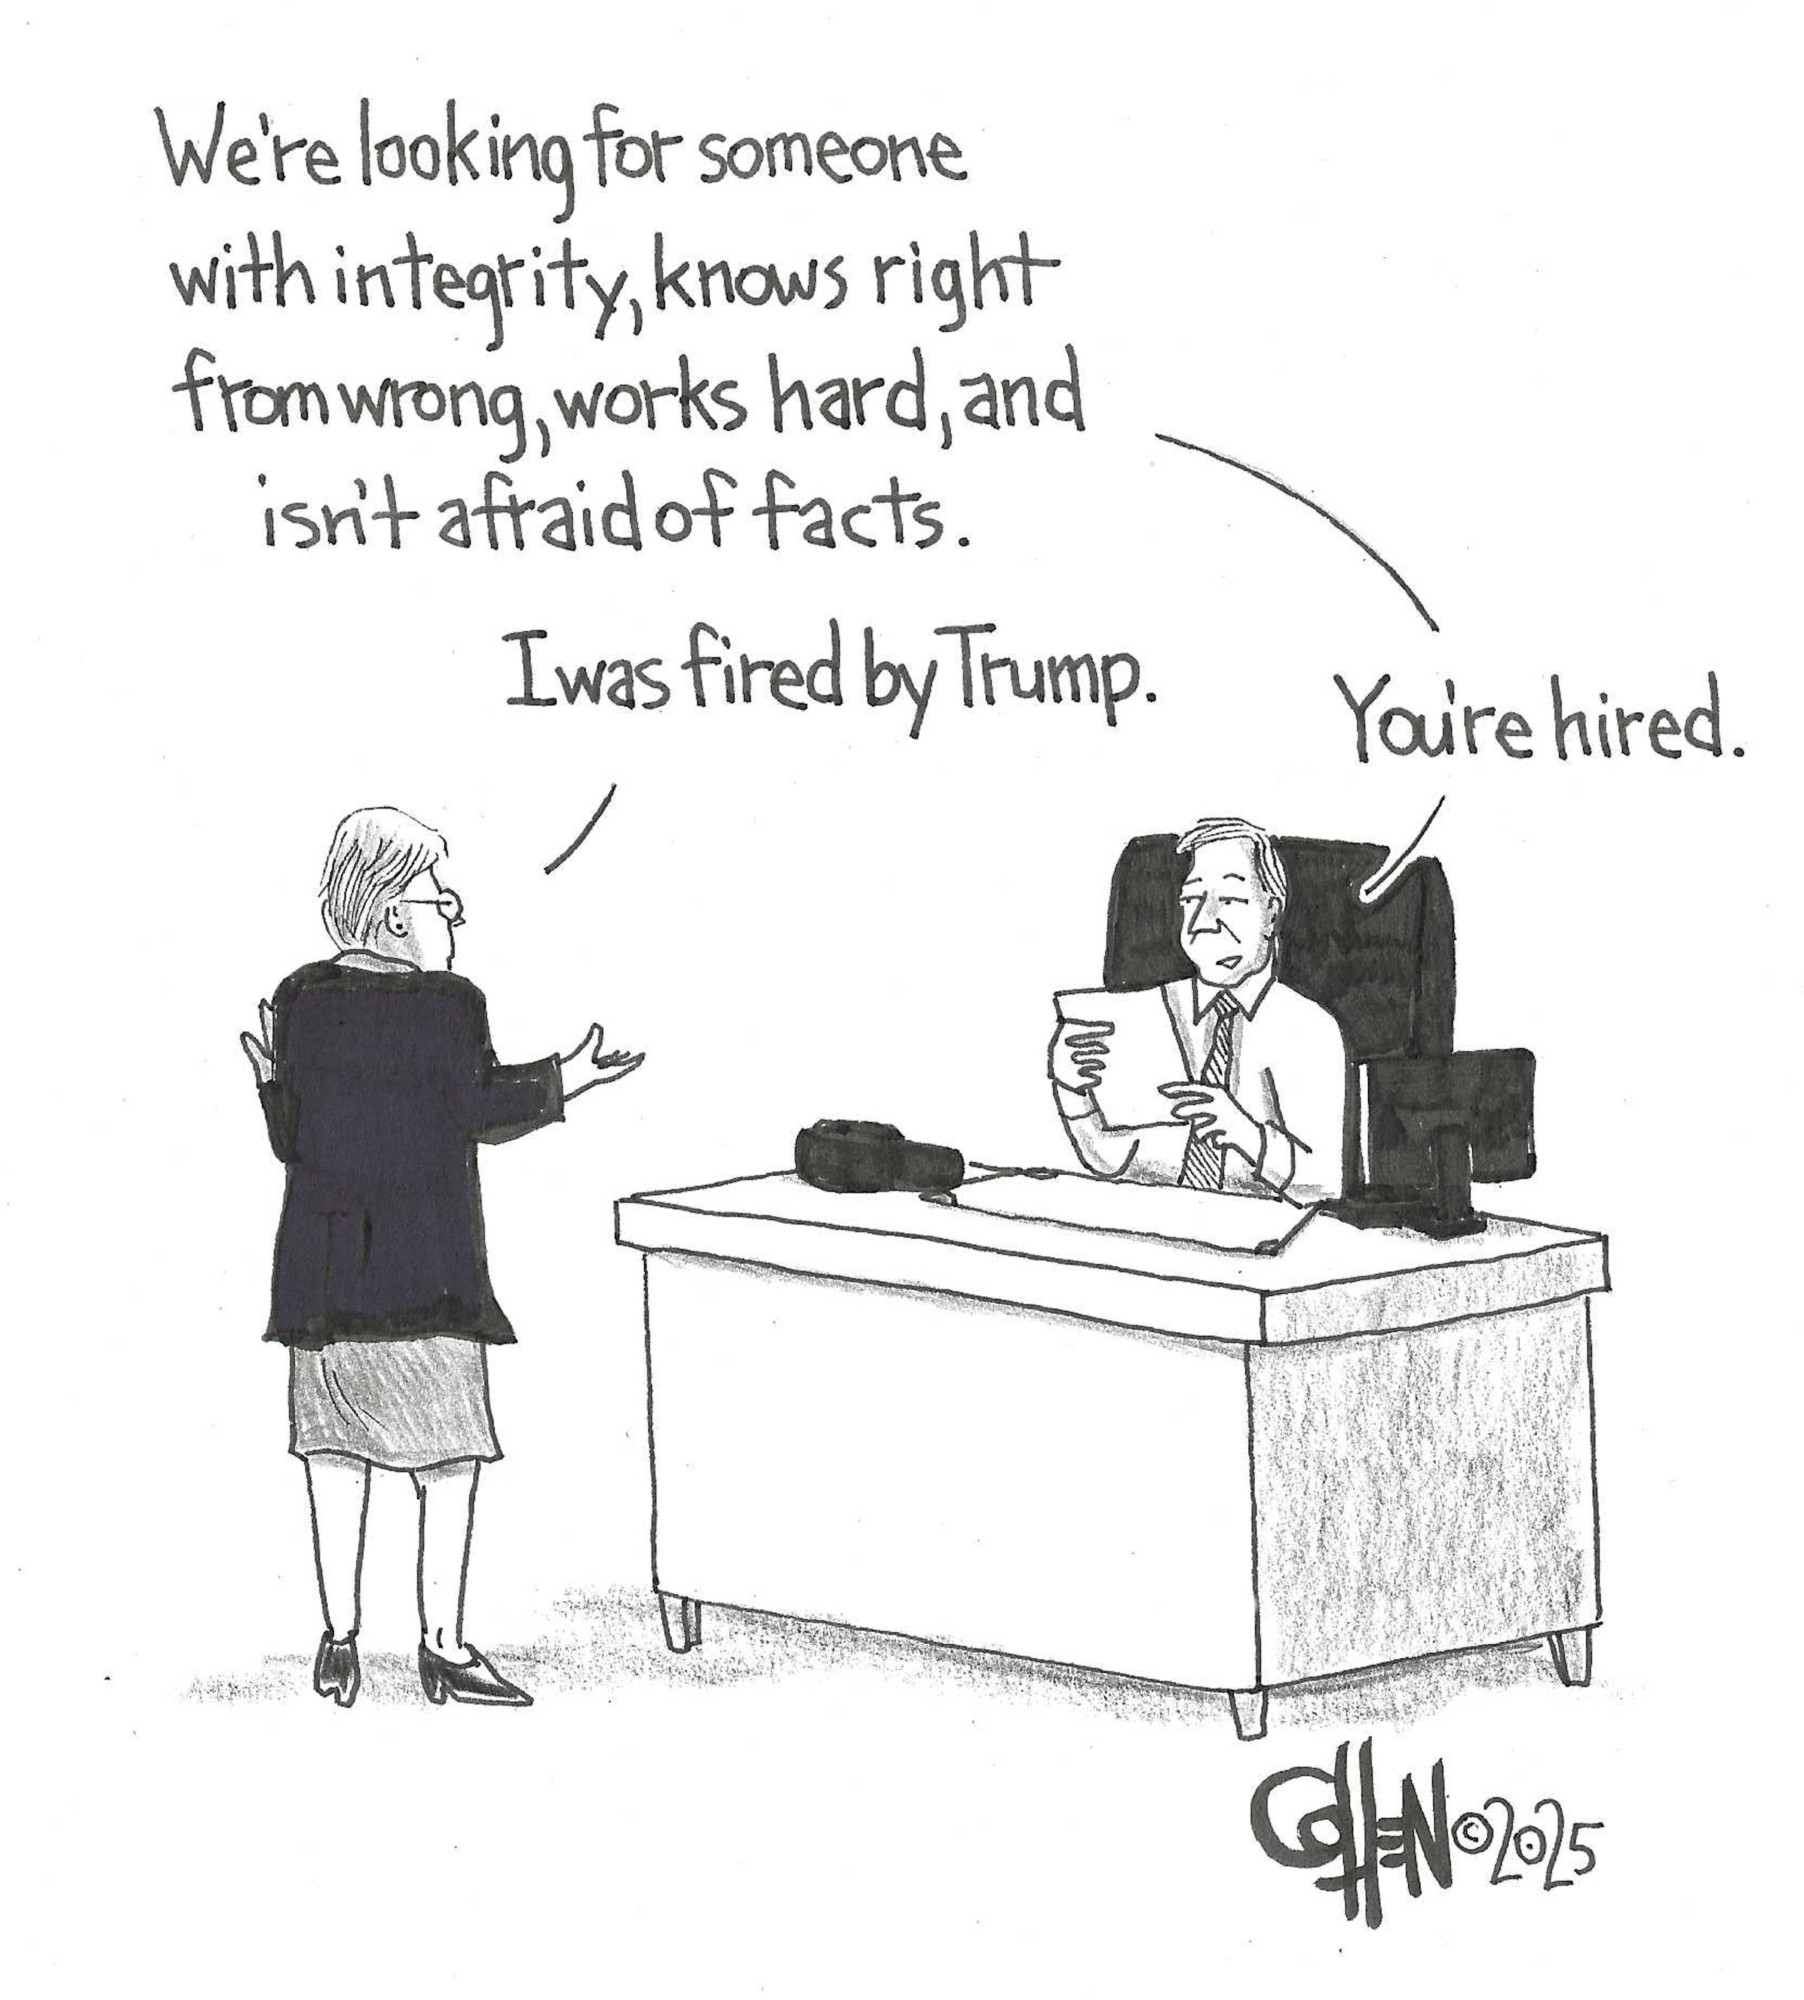 We're looking for someone
with integrity, knows right
from wrong, works hard, and
isn't afraid of facts.
I was fired by Trump.
You're hired.
COHEN © 2025